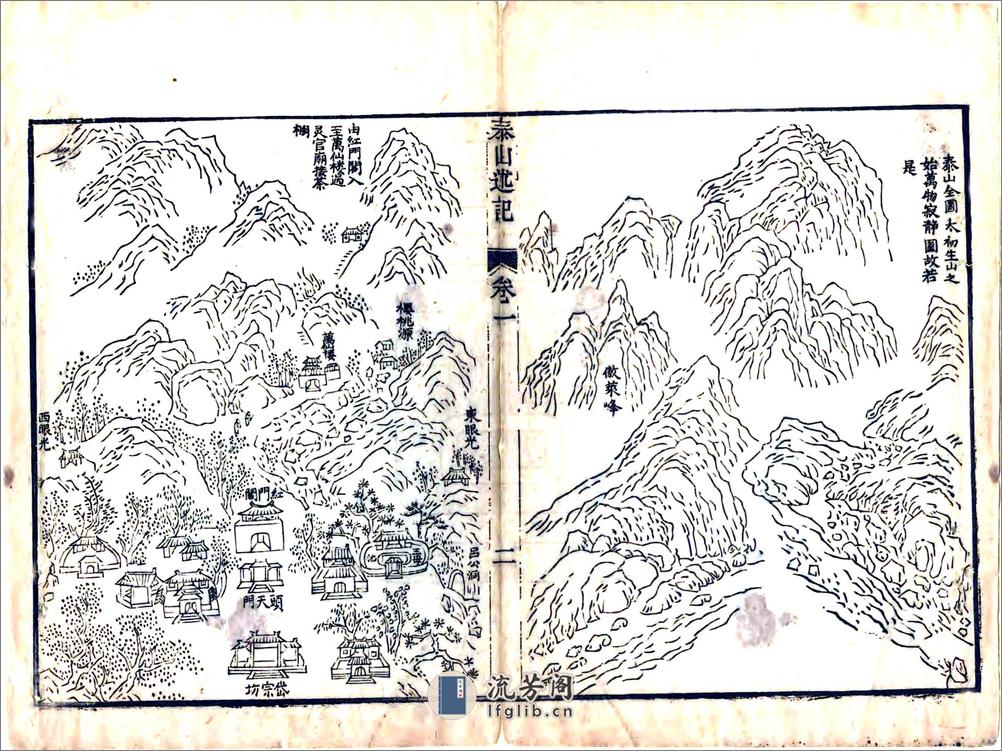 泰山全圖太初生山之
始萬物寂靜圖故若
是
傲萊峰
泰山述記
卷一
二
由紅門閣入
至萬仙楼過
灵官廟接茶
棚
櫻桃源
萬楼
東眼光
西眼光
紅門閣
呂公洞
頭天門
岱宗坊
流芳阁
lfglib.cn